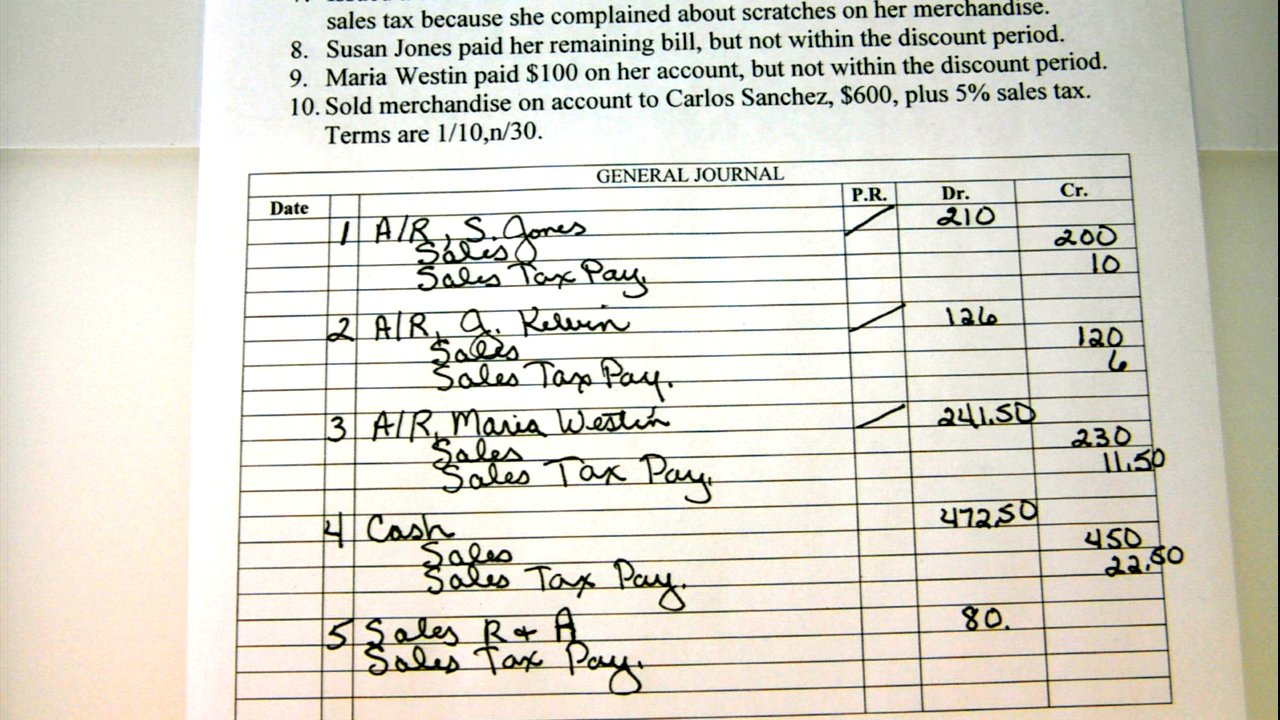 sales tax because she complained about scratches on her merchandise.
8. Susan Jones paid her remaining bill, but not within the discount period.
9. Maria Westin paid $100 on her account, but not within the discount period.
10. Sold merchandise on account to Carlos Sanchez, $600, plus 5% sales tax.
Terms are 1/10,n/30.
GENERAL JOURNAL
Date P.R. Dr. Cr.
1 A/R, S. Jones 210
Sales 200
Sales Tax Pay. 10
2 A/R, J. Kelvin 126
Sales 120
Sales Tax Pay. 6
3 A/R, Maria Westin 241.50
Sales 230
Sales Tax Pay. 11.50
4 Cash 472.50
Sales 450
Sales Tax Pay. 22.50
5 Sales R & A 80.
Sales Tax Pay.